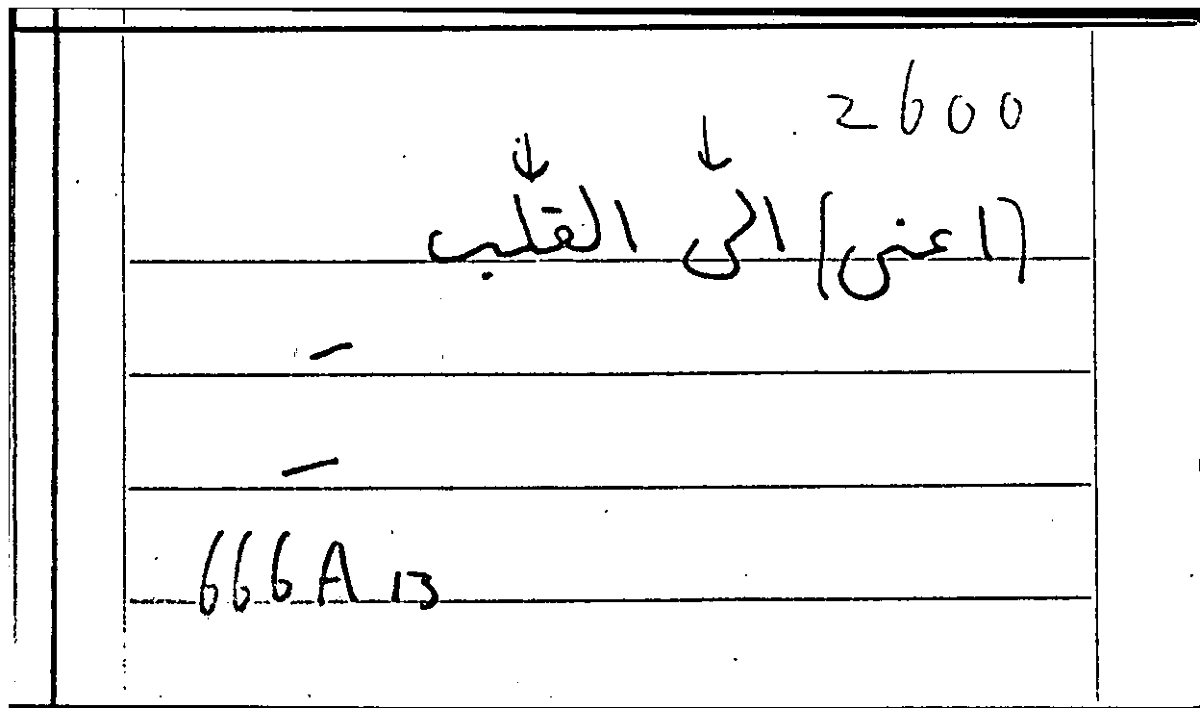 2600
↓ ↓
(اعنى) الى القلب
–
–
666A 13